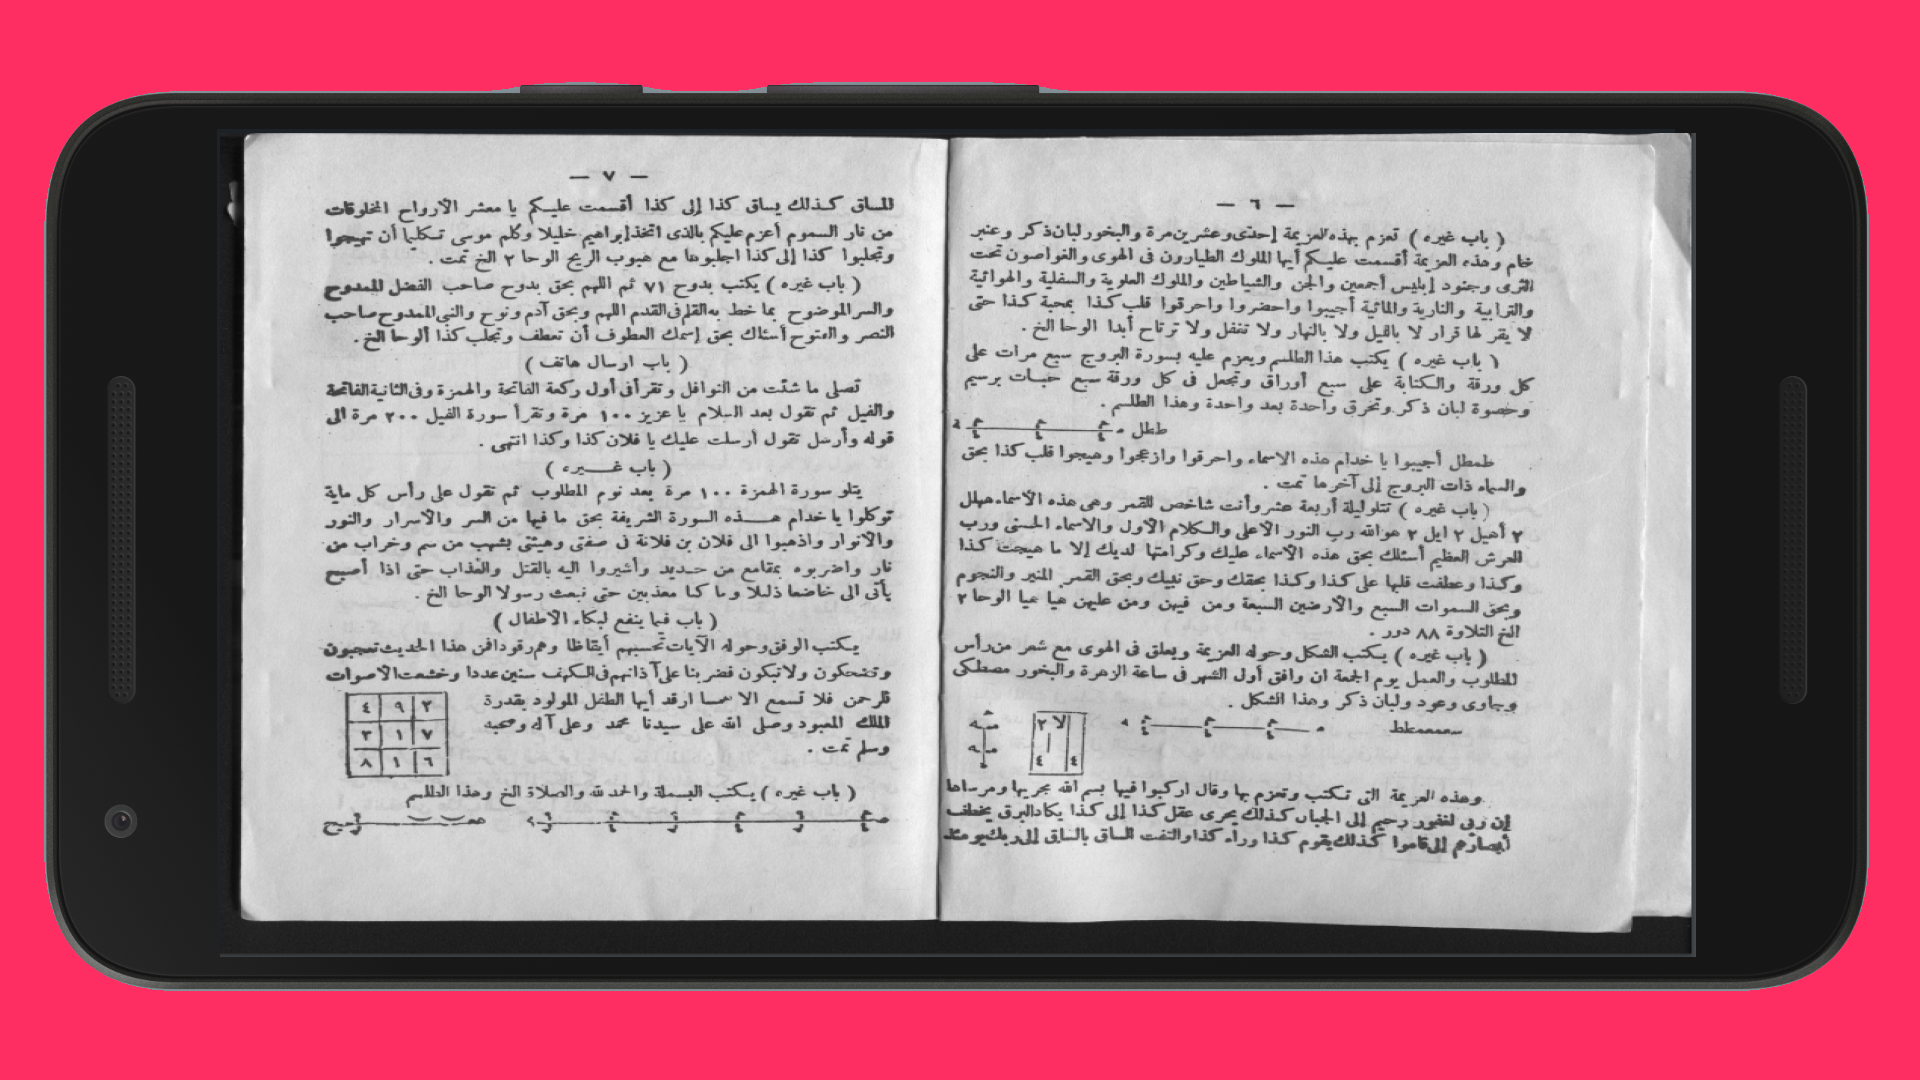 — ٦ —
( باب غيره ) تعزم بهذه العزيمة إحدى وعشرين مرة والبخور لبان ذكر وعنبر
خام وهذه العزيمة أقسمت عليكم أيها الملوك الطيارون فى الهوى والغواصون تحت
الثرى وجنود إبليس أجمعين والجن والشياطين والملوك العلوية والسفلية والهوائية
والترابية والنارية والمائية أجيبوا واحضروا واحرقوا قلب كذا بمحبة كذا حتى
لا يقر لها قرار لا بالليل ولا بالنهار ولا تغفل ولا ترتاح أبدا الوحا الخ .
( باب غيره ) يكتب هذا الطلسم ويعزم عليه بسورة البروج سبع مرات على
كل ورقة والكتابة على سبع أوراق وتجعل فى كل ورقة سبع حبات برسيم
وحصوة لبان ذكر وتحرق واحدة بعد واحدة وهذا الطلسم .
ططل
طمطل أجيبوا يا خدام هذه الاسماء واحرقوا وازعجوا وهيجوا قلب كذا بحق
والسماء ذات البروج إلى آخرها تمت .
( باب غيره ) تتلو ليلة أربعة عشر وأنت شاخص للقمر وهى هذه الأسماء هيلل
٢ أهيل ٢ ايل ٢ هو الله رب النور الأعلى والكلام الأول والاسماء الحسنى ورب
العرش العظيم أسئلك بحق هذه الأسماء عليك وكرامتها لديك إلا ما هيجت كذا
وكذا وعطفت قلبها على كذا وكذا بحقك وحق نبيك وبحق القمر المنير والنجوم
وبحق السموات السبع والأرضين السبعة ومن فيهن ومن عليهن هيا هيا الوحا ٢
الخ التلاوة ٨٨ دور .
( باب غيره ) يكتب الشكل وحوله العزيمة ويعلق فى الهوى مع شعر من رأس
المطلوب والعمل يوم الجمعة ان وافق أول الشهر فى ساعة الزهرة والبخور مصطكى
وجاوى وعود ولبان ذكر وهذا الشكل .
٢ لا
ا
٤ ٤
وهذه العزيمة التى تكتب وتعزم بها وقال اركبوا فيها بسم الله مجريها ومرساها
إن ربى لغفور رحيم إلى الجبال كذلك يجرى عقل كذا إلى كذا يكاد البرق يخطف
أبصارهم إلى قاموا كذلك يقوم كذا وراء كذا والتفت الساق بالساق إلى ربك يومئذ
— ٧ —
المساق كذلك يساق كذا إلى كذا أقسمت عليكم يا معشر الأرواح المخلوقات
من نار السموم أعزم عليكم بالذى اتخذ إبراهيم خليلا وكلم موسى تكليما أن تهيجوا
وتجلبوا كذا إلى كذا اجلبوها مع هبوب الريح الوحا ٢ الخ تمت .
( باب غيره ) يكتب بدوح ٧١ ثم اللهم بحق بدوح صاحب الفضل الممدوح
والسر الموضوح بما خط به القلم فى القدم اللهم وبحق آدم ونوح والنبى الممدوح صاحب
النصر والفتوح أسئلك بحق إسمك العطوف أن تعطف وتجلب كذا ألوحا الخ .
( باب ارسال هاتف )
تصلى ما شئت من النوافل وتقرأ فى أول ركعة الفاتحة والهمزة وفى الثانية الفاتحة
والفيل ثم تقول بعد السلام يا عزيز ١٠٠ مرة وتقرأ سورة الفيل ٢٠٠ مرة الى
قوله وأرسل تقول أرسلت عليك يا فلان كذا وكذا انتهى .
( باب غـــيره )
يتلو سورة الهمزة ١٠٠ مرة بعد نوم المطلوب ثم تقول على رأس كل ماية
توكلوا يا خدام هـــذه السورة الشريفة بحق ما فيها من السر والأسرار والنور
والأنوار واذهبوا الى فلان بن فلانة فى صفتى وهيئتى بشهب من سم وخراب من
نار واضربوه بمقامع من حديد وأشيروا اليه بالقتل والعذاب حتى اذا أصبح
يأتى الى خاضعا ذليلا وما كنا معذبين حتى نبعث رسولا الوحا الخ .
( باب فيما ينفع لبكاء الأطفال )
يكتب الوفق وحوله الآيات تحسبهم أيقاظا وهم رقود افمن هذا الحديث تعجبون
وتضحكون ولا تبكون فضربنا على آذانهم فى الكهف سنين عددا وخشعت الأصوات
للرحمن فلا تسمع الا همسا ارقد أيها الطفل المولود بقدرة
الملك المعبود وصلى الله على سيدنا محمد وعلى آله وصحبه
وسلم تمت .
٢ ٩ ٤
٧ ١ ٣
٦ ١ ٨
( باب غيره ) يكتب البسملة والحمد لله والصلاة الخ وهذا الطلسم